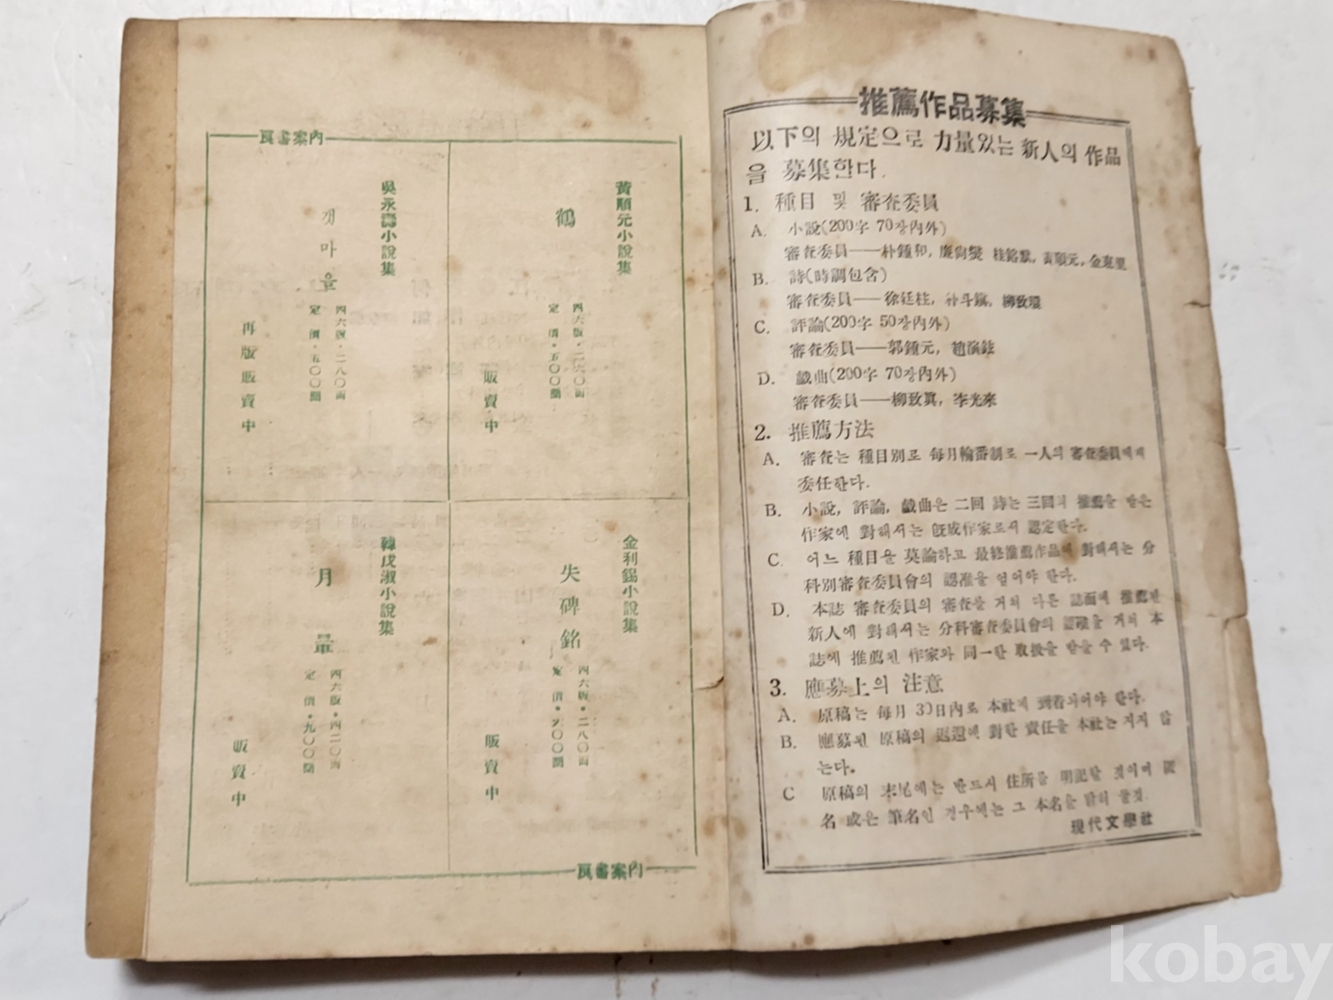 良書案內
黃順元小說集
鶴
四六版·二六〇面
定價·五〇〇圜
販賣中
吳永壽小說集
갯마을
四六版·二八〇面
定價·五〇〇圜
再版販賣中
金利錫小說集
失碑銘
四六版·二八〇面
定價· 〇〇圜
販賣中
韓戊淑小說集
月暈
四六版·四二〇面
定價·九〇〇圜
販賣中
良書案內
推薦作品募集
以下의 規定으로 力量있는 新人의 作品
을 募集한다.
1. 種目 및 審査委員
A. 小說(200字 70장內外)
審査委員——朴鍾和, 廉尙燮 桂鎔默, 黃順元, 金東里
B. 詩(時調包含)
審査委員——徐廷柱, 朴斗鎭, 柳致環
C. 評論(200字 50장內外)
審査委員——郭鍾元, 趙演鉉
D. 戱曲(200字 70장內外)
審査委員——柳致眞, 李光來
2. 推薦方法
A. 審査는 種目別로 每月輪番制로 一人의 審査委員에게
委任한다.
B. 小說, 評論, 戱曲은 二回 詩는 三回의 推薦을 받은
作家에 對해서는 旣成作家로서 認定한다.
C. 어느 種目을 莫論하고 最終推薦作品에 對해서는 分
科別審査委員會의 認准을 얻어야 한다.
D. 本誌 審査委員의 審査를 거쳐 다른 誌面에 推薦된
新人에 對해서는 分科審査委員會의 認准을 거쳐 本
誌에 推薦된 作家와 同一한 取扱을 받을 수 있다.
3. 應募上의 注意
A. 原稿는 每月 30日內로 本社에 到着되어야 한다.
B. 應募된 原稿의 返還에 對한 責任을 本社는 지지 않
는다.
C 原稿의 末尾에는 반드시 住所를 明記할 것이며
名 或은 筆名인 경우에는 그 本名을 밝히 할것.
現代文學社
kobay